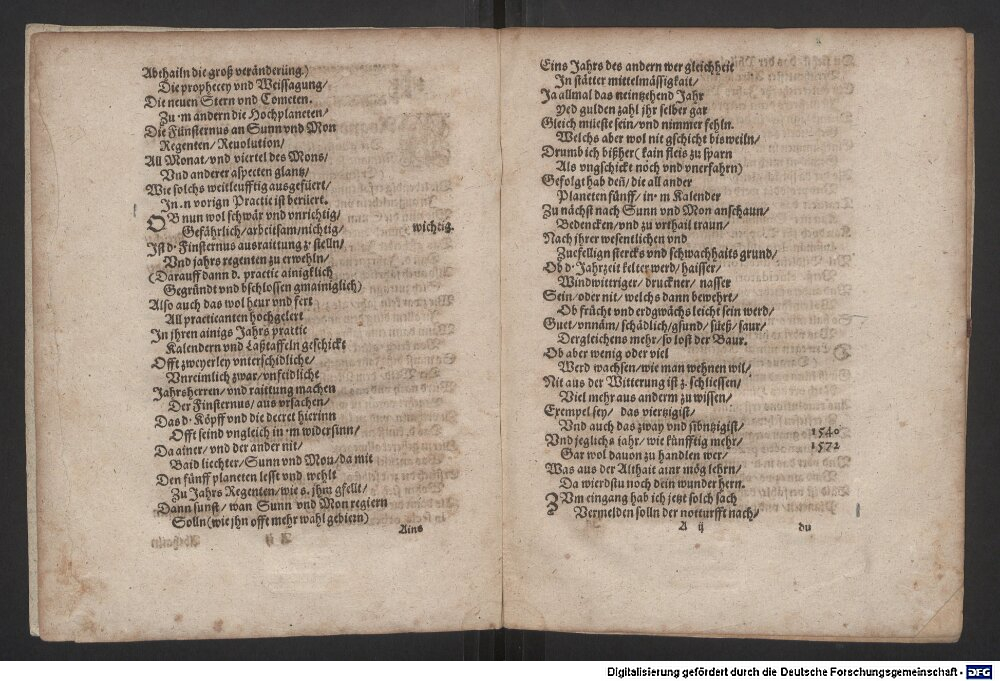 Abthailn die groß veränderung.)
Die prophecey vnd Weissagung/
Die neuen Stern vnd Cometen.
Zu ·m andern die Hochplaneten/
Die Fünsternus an Sunn vnd Mon
Regenten/ Reuolution/
All Monat/ vnd viertel des Mons/
Vnd anderer aspecten glantz/
Wie solchs weitleufftig ausgefüert/
In ·n vorign Practic ist berüert.
OB nun wol schwär vnd vnrichtig/
Gefährlich/ arbeitsam/ nichtig/ wichtig.
Ist d· Finsternus ausraittung z· stelln/
Vnd jahrs regenten zu erwehln/
(Darauff dann d. practic ainigklich
Gegründt vnd bschlossen gmainiglich)
Also auch das wol heur vnd fert
All practicanten hochgelert
In jhren ainigs Jahrs prattic
Kalendern vnd Laßtaffeln geschickt
Offt zweyerley vnterschidliche/
Vnreimlich zwar/ vnfeidliche
Jahrsherren/ vnd raittung machen
Der Finsternus/ aus vrsachen/
Das d· Köpff vnd die decret hierinn
Offt seind vngleich in ·m widersinn/
Da ainer/ vnd der ander nit/
Baid liechter/ Sunn vnd Mon/ da mit
Den fünff planeten lesst vnd wehlt
Zu Jahrs Regenten/ wie s. jhm gfellt/
Dann sunst/ wan Sunn vnd Mon regiern
Solln (wie jhn offt mehr wahl gebiern)
Ains
Eins Jahrs des andern wer gleichheit
In stätter mittelmässigkait/
Ja allmal das neintzehend Jahr
Yed gulden zahl jhr selber gar
Gleich müeste sein/ vnd nimmer fehln.
Welchs aber wol nit gschicht bisweiln/
Drumb ich bißher (kain fleis zu sparn
Als vngschickt noch vnd vnerfahrn)
Gefolgt hab den̄/ die all ander
Planeten fünff/ in· m Kalender
Zu nächst nach Sunn vnd Mon anschaun/
Bedencken/ vnd zu vrthail traun/
Nach jhrer wesentlichen vnd
Zuefellign stercks vnd schwachhaits grund/
Ob d· Jahrzeit kelter werd/ haisser/
Windwittriger/ druckner/ nasser
Sein/ oder nit/ welchs dann bewehrt/
Ob frücht vnd erdgwächs leicht sein werd/
Guet/ vnnäm/ schädlich/ gsund/ süeß/ saur/
Dergleichens mehr/ so loßt der Baur.
Ob aber wenig oder viel
Werd wachsen/ wie man wehnen wil/
Nit aus der Witterung ist z· schliessen/
Viel mehr aus anderm zu wissen/
Exempel sey/ das viertzigist/
Vnd auch das zway vnd sibntzigist/ 1540
Vnd jeglichs jahr/ wie künfftig mehr/ 1572
Gar wol dauon zu handlen wer/
Was aus der Althait ainr mög lehrn/
Da wierdstu noch dein wunder hern.
ZVm eingang hab ich jetzt solch sach
Vermelden solln der notturfft nach/
A ij du
Digitalisierung gefördert durch die Deutsche Forschungsgemeinschaft - DFG